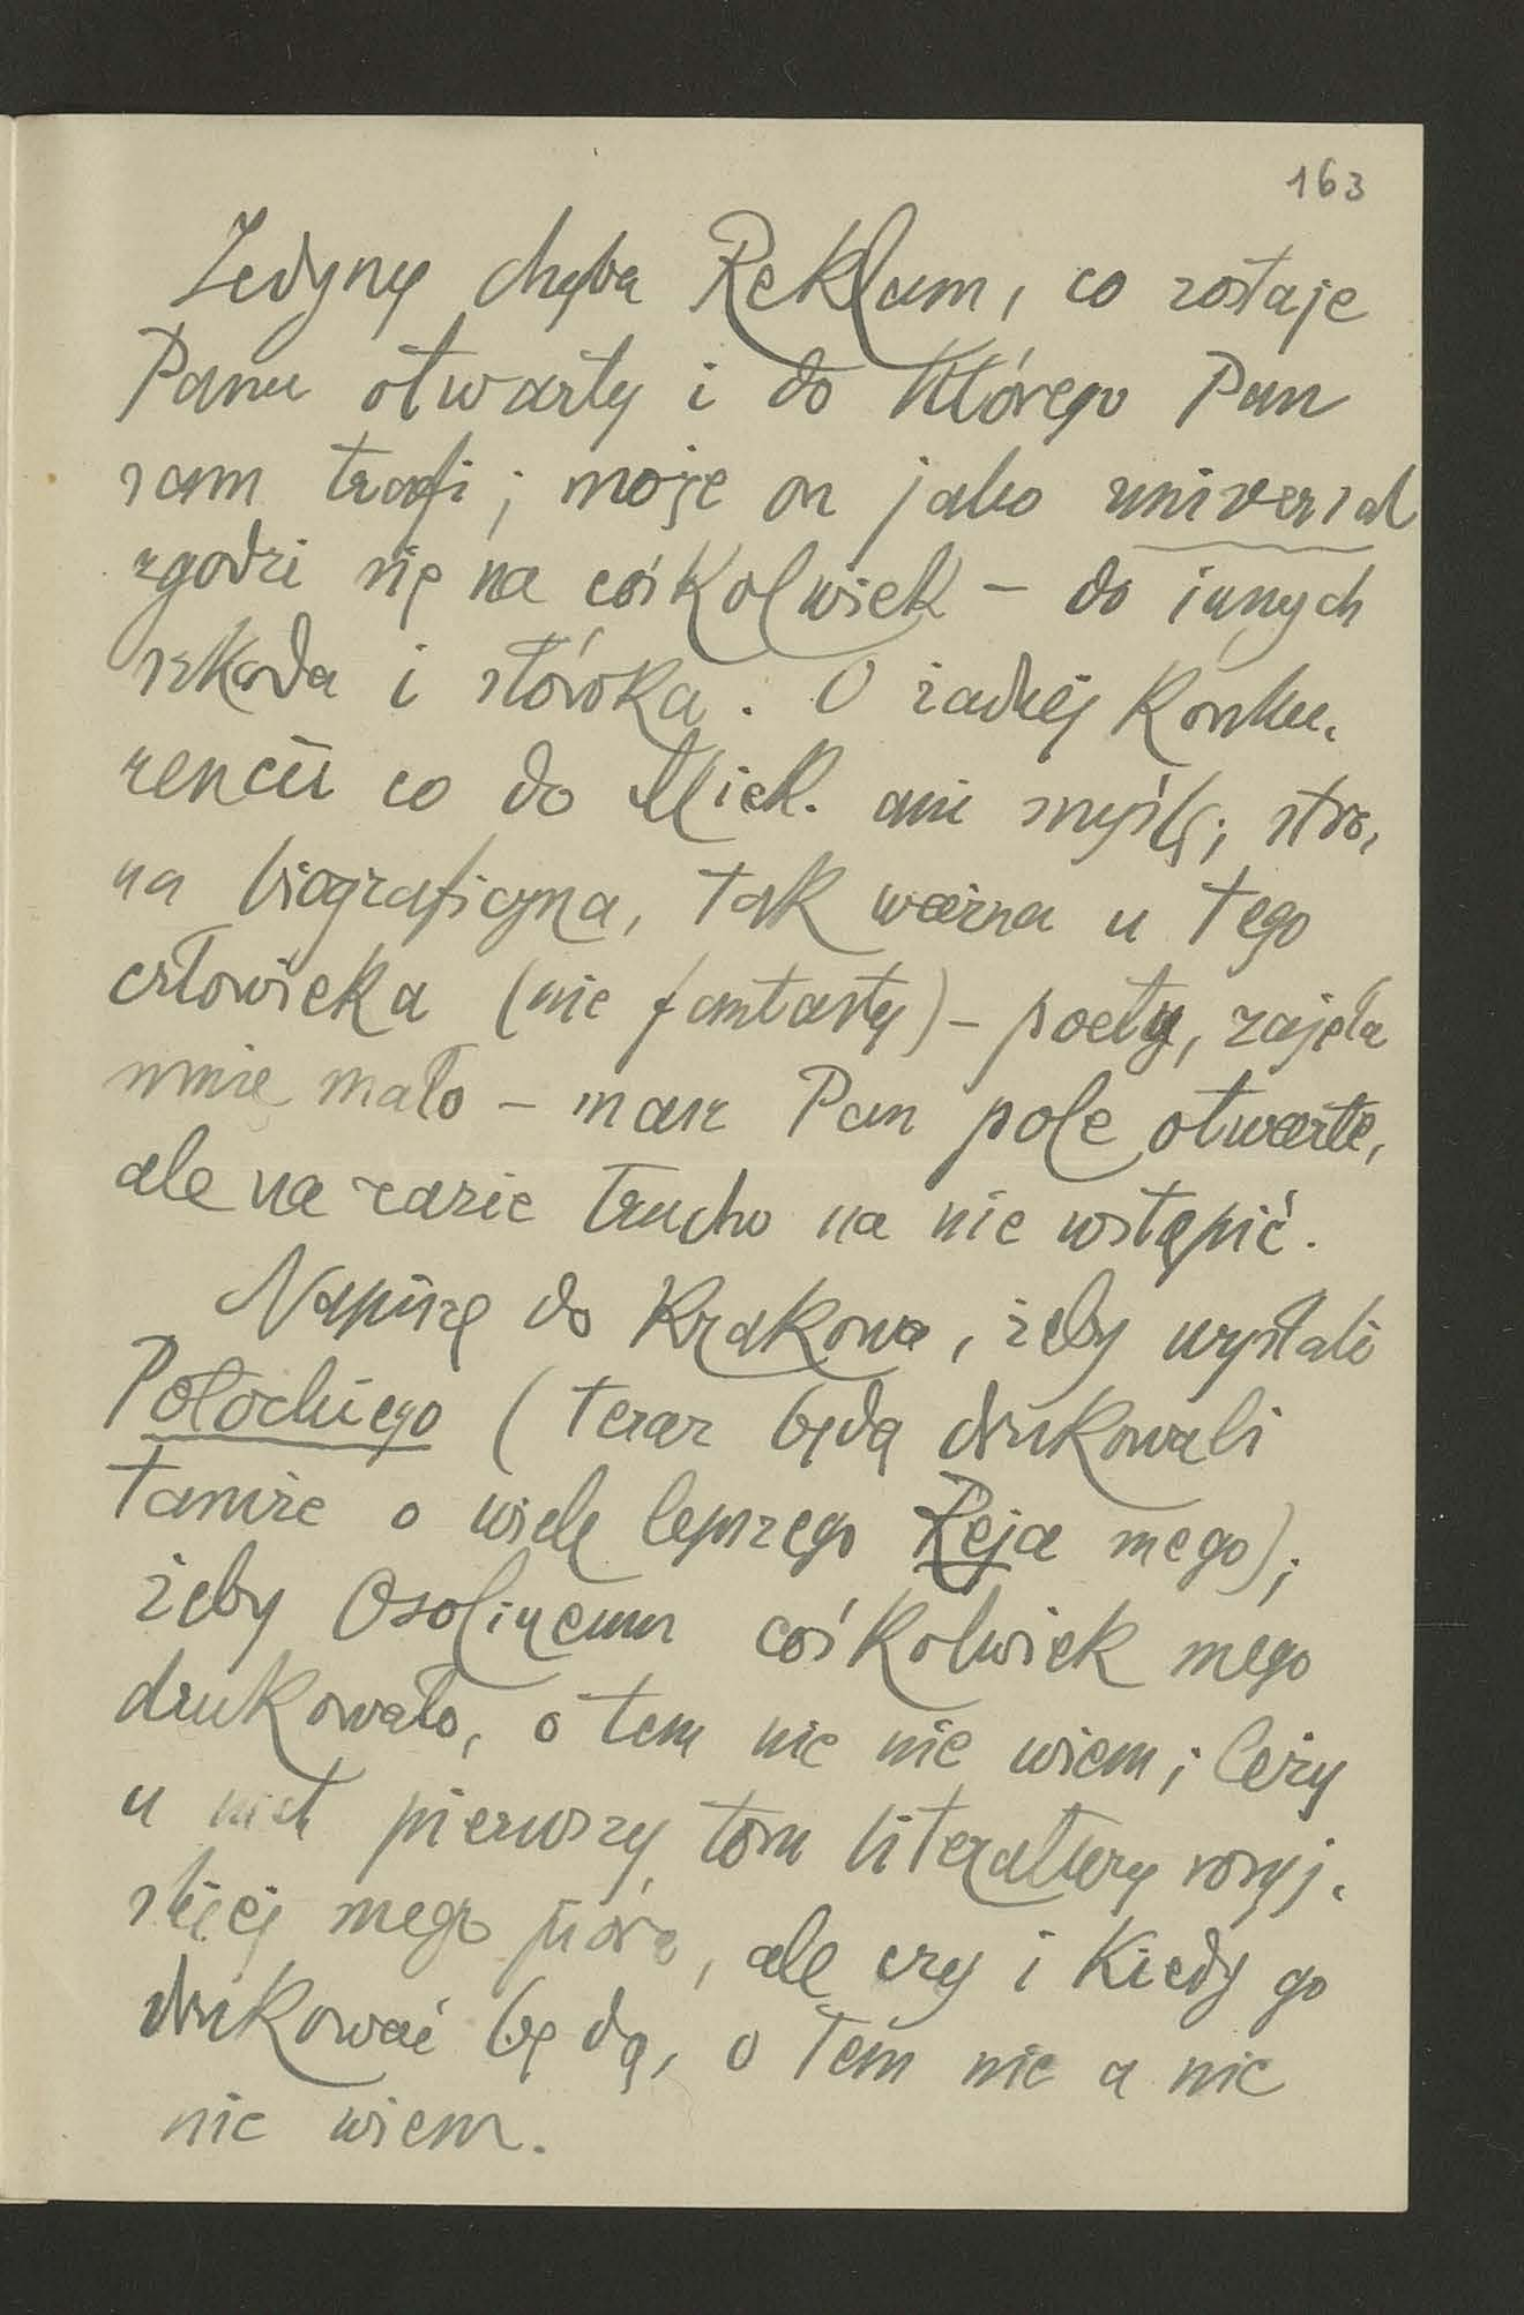 163
Jedyny chyba Reklam, co zostaje
Panu otwarty i do którego Pan
sam trafi; może on jako universal
zgodzi się na cośkolwiek – do innych
szkoda i słówka. O żadnej konku-
rencii co do Mick. ani myślę; stro-
na biograficzna, tak ważna u tego
człowieka (nie fantasty) – poety, zajęła
mnie mało – masz Pan pole otwarte,
ale na razie trucho na nie wstąpić.
Napiszę do Krakowa, żeby wysłali
Potockiego (teraz będą drukowali
tamże o wiele lepszego Reja mego);
żeby Osolineum cośkolwiek mego
drukowało, o tem nic nie wiem; leży
u nich pierwszy tom literatury rosyj-
skiej mego pióra, ale czy i kiedy go
drukować będą, o tem nic a nic
nie wiem.